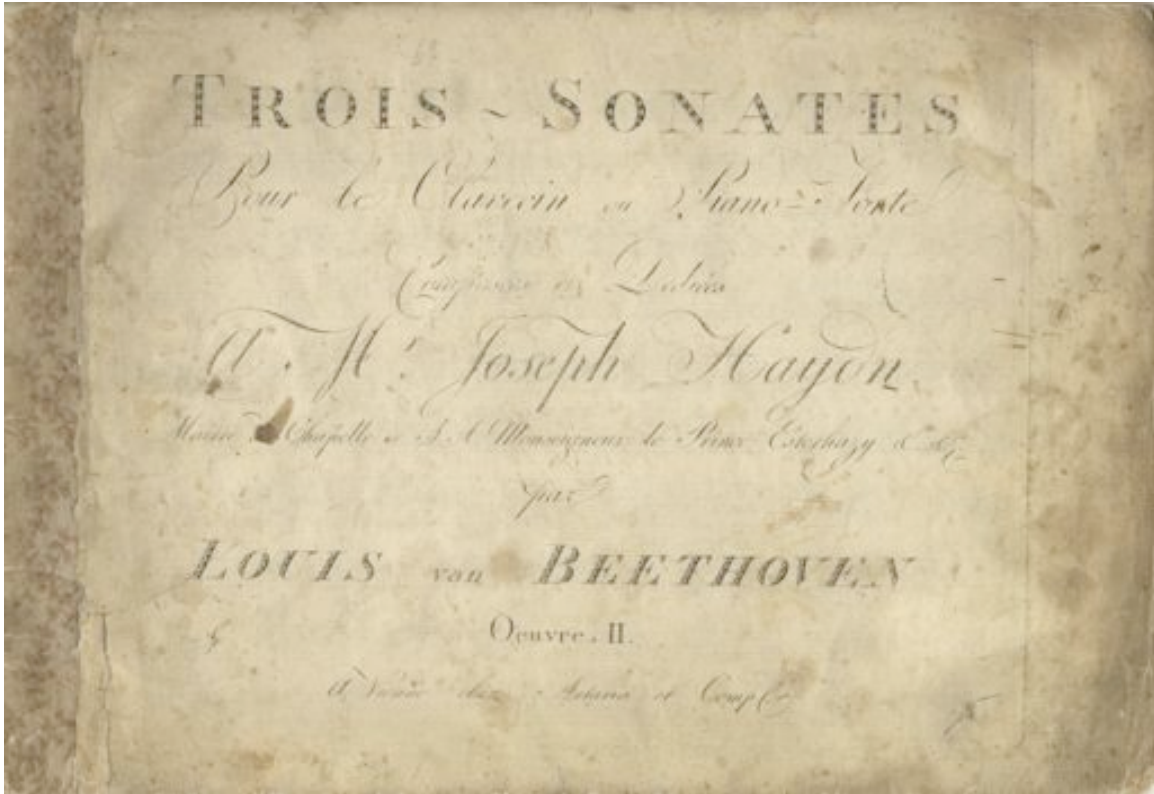 TROIS ~ SONATES
Pour le Clavecin ou Piano-Forte
Composées et Dediées
A. Mr. Joseph Haydn
Maitre de Chapelle de S. A. Monseigneur le Prince Esterhazy &c. &c.
par
LOUIS van BEETHOVEN
Oeuvre. II.
A Vienne chez Artaria et Comp